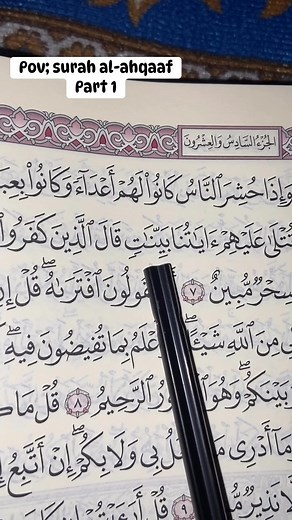 Pov; surah al-ahqaaf
Part 1
الجُزْءُ السَّادِسُ وَالعِشْرُونَ
وَإِذَا حُشِرَ ٱلنَّاسُ كَانُوا۟ لَهُمْ أَعْدَآءً وَكَانُوا۟ بِعِبَا
تُتْلَىٰ عَلَيْهِمْ ءَايَٰتُنَا بَيِّنَٰتٍ قَالَ ٱلَّذِينَ كَفَرُوا۟
سِحْرٌ مُّبِينٌ ٧ يَقُولُونَ ٱفْتَرَىٰهُ ۖ قُلْ إِنِ
لِى مِنَ ٱللَّهِ شَيْـًٔا أَعْلَمُ بِمَا تُفِيضُونَ فِيهِ ۖ
وَبَيْنَكُمْ ۖ وَهُوَ ٱلرَّحِيمُ ٨ قُلْ مَا كُ
وَمَآ أَدْرِى مَا بِى وَلَا بِكُمْ ۖ إِنْ أَتَّبِعُ إِ
نَذِيرٌ ٩ قُلْ أَرَءَيْتُمْ إِن كَانَ